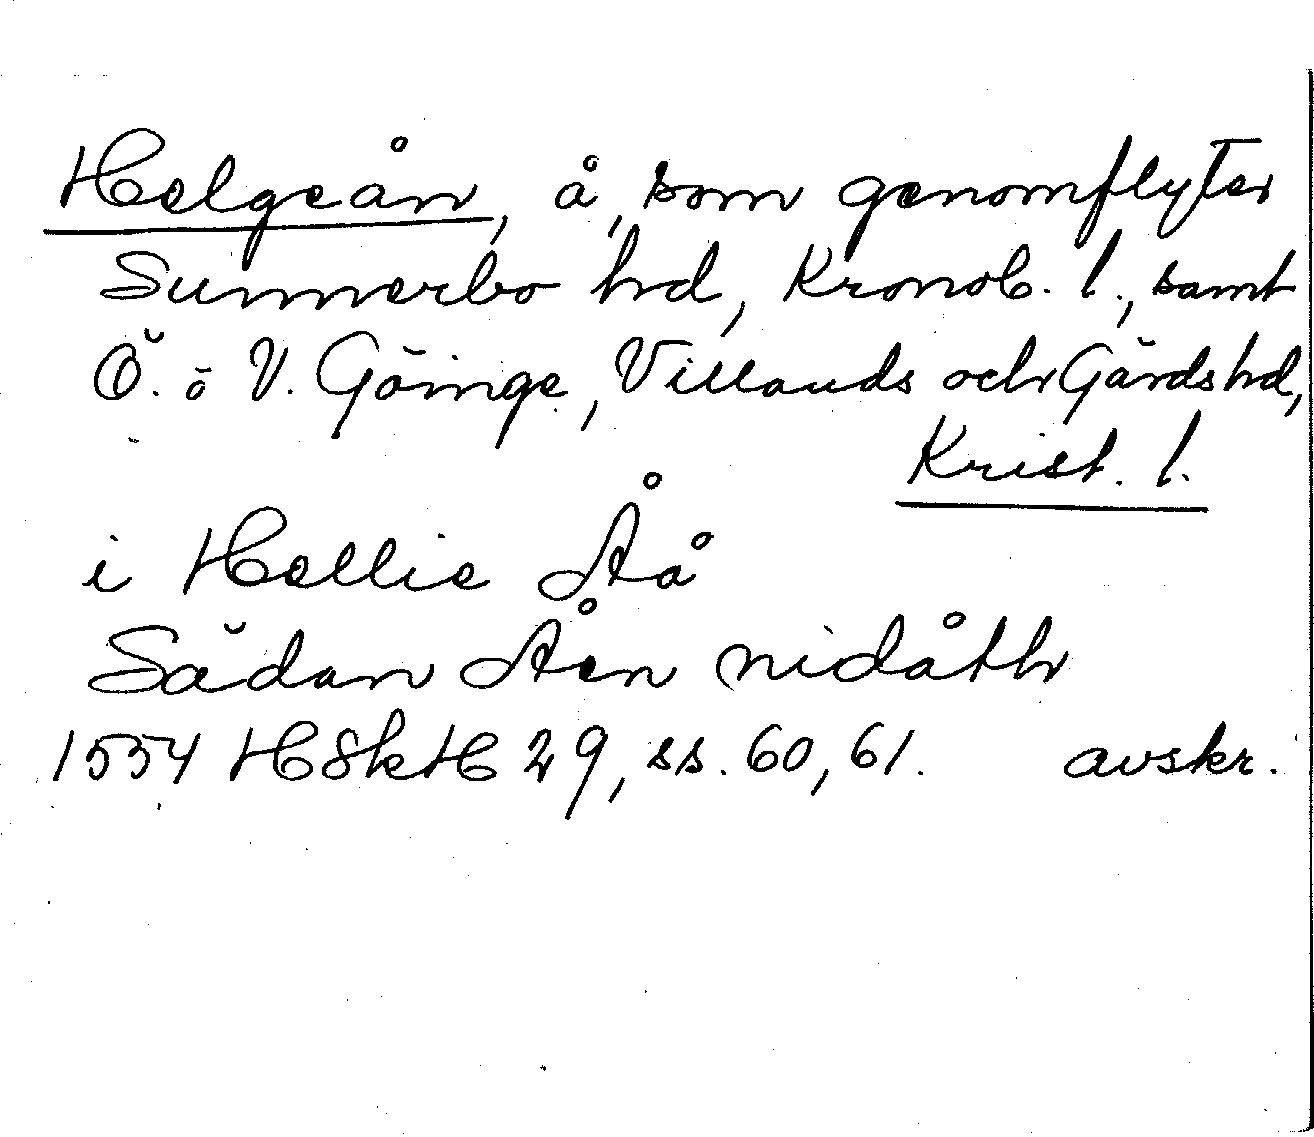 Helgeån, å, som genomflyter
Sunnerbo hd, Kronob. l., samt
Ö. o V. Göinge, Villands och Gärds hd,
Krist. l.
i Hellie Åå
Sädan Åen nidåth
1554 HSkH 29, ss. 60, 61. avskr.